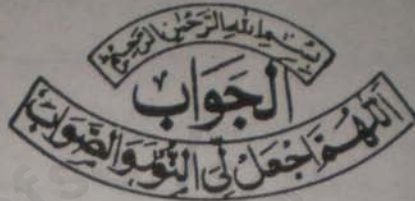 بِسْمِ اللهِ الرَّحْمٰنِ الرَّحِيْمِ
اَلْجَوَابْ
اَللّٰهُمَّ اجْعَلْ لِّيَ النُّوْرَ وَالصَّوَابَ